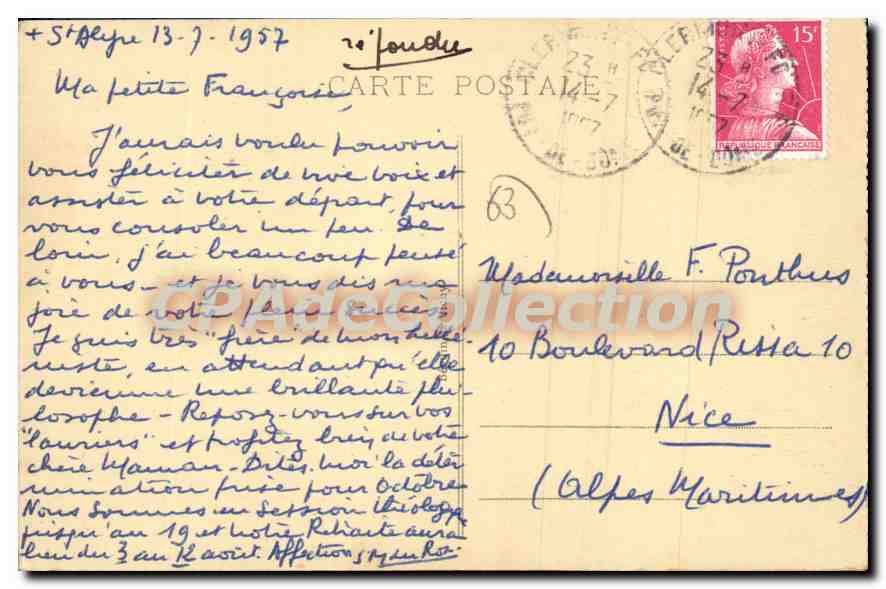 + St Alyre 13-7-1957
répondu
CARTE POSTALE
15F
REPUBLIQUE FRANÇAISE
23 H
14-7
1957
PUY-DE-DOME
23 H
14-7
1957
PUY-DE-DOME
63
Ma petite Françoise,
J'aurais voulu pouvoir
vous féliciter de vive voix et
assister à votre départ, pour
vous consoler un peu. De
loin, j'ai beaucoup pensé
à vous - et je vous dis ma
joie de votre plein succès.
Je suis très "fière" de mon hellé-
niste, en attendant qu'elle
devienne une brillante phi-
losophe - Reposez-vous sur vos
"lauriers" et profitez bien de votre
chère Maman - Dites-moi la déter
mination prise pour Octobre
Nous sommes en session théologique
jusqu'au 19 et notre Retraite aura
lieu du 3 au 12 août. Affection
Mademoiselle F. Ponthus
10 Boulevard Rissa 10
Nice
(Alpes Maritimes)
CPAdeCollection